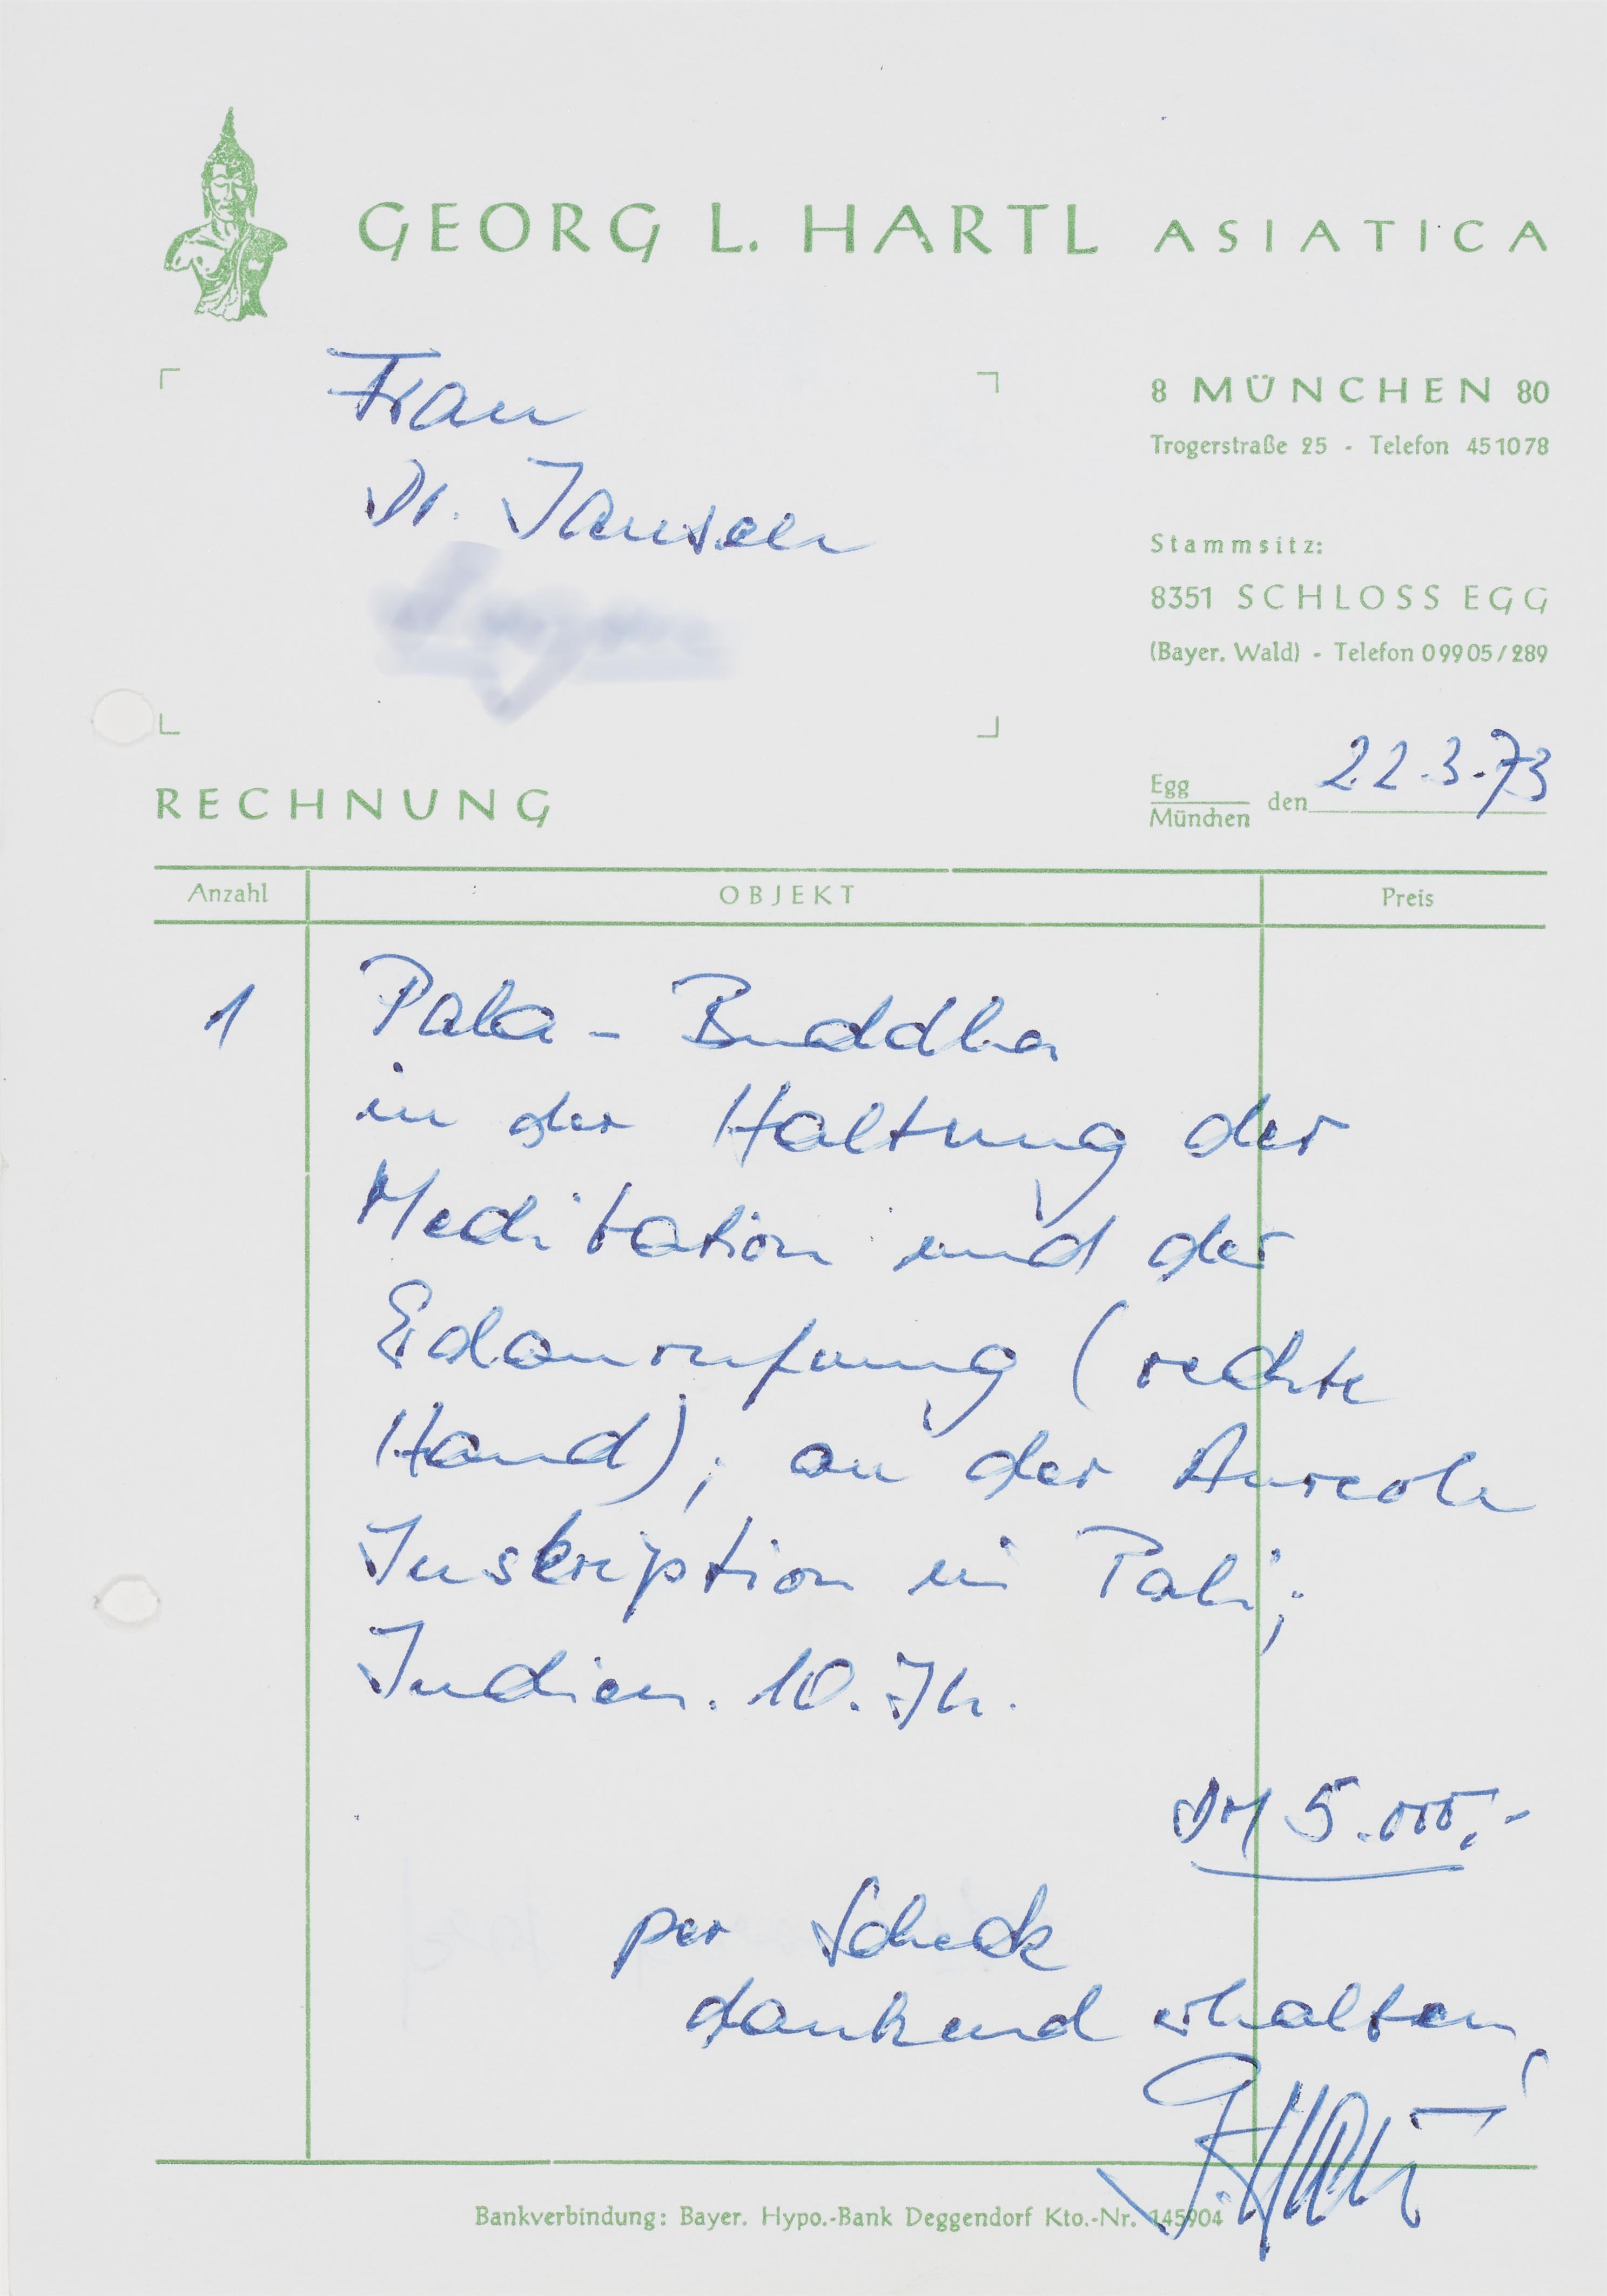 GEORG L. HARTL ASIATICA
Frau
Dr. Jansen
8 MÜNCHEN 80
Trogerstraße 25 - Telefon 451078
Stammsitz:
8351 SCHLOSS EGG
(Bayer. Wald) - Telefon 09905/289
RECHNUNG
Egg
München den 22.3.73
Anzahl OBJEKT Preis
1 Pala - Buddha
in der Haltung der
Meditation und der
Eidanrufung (rechte
Hand); an der Aureole
Inskription in Pali;
Indien. 10. Jh.
DM 5.000,-
per Scheck
dankend erhalten
Bankverbindung: Bayer. Hypo.-Bank Deggendorf Kto.-Nr. 145904